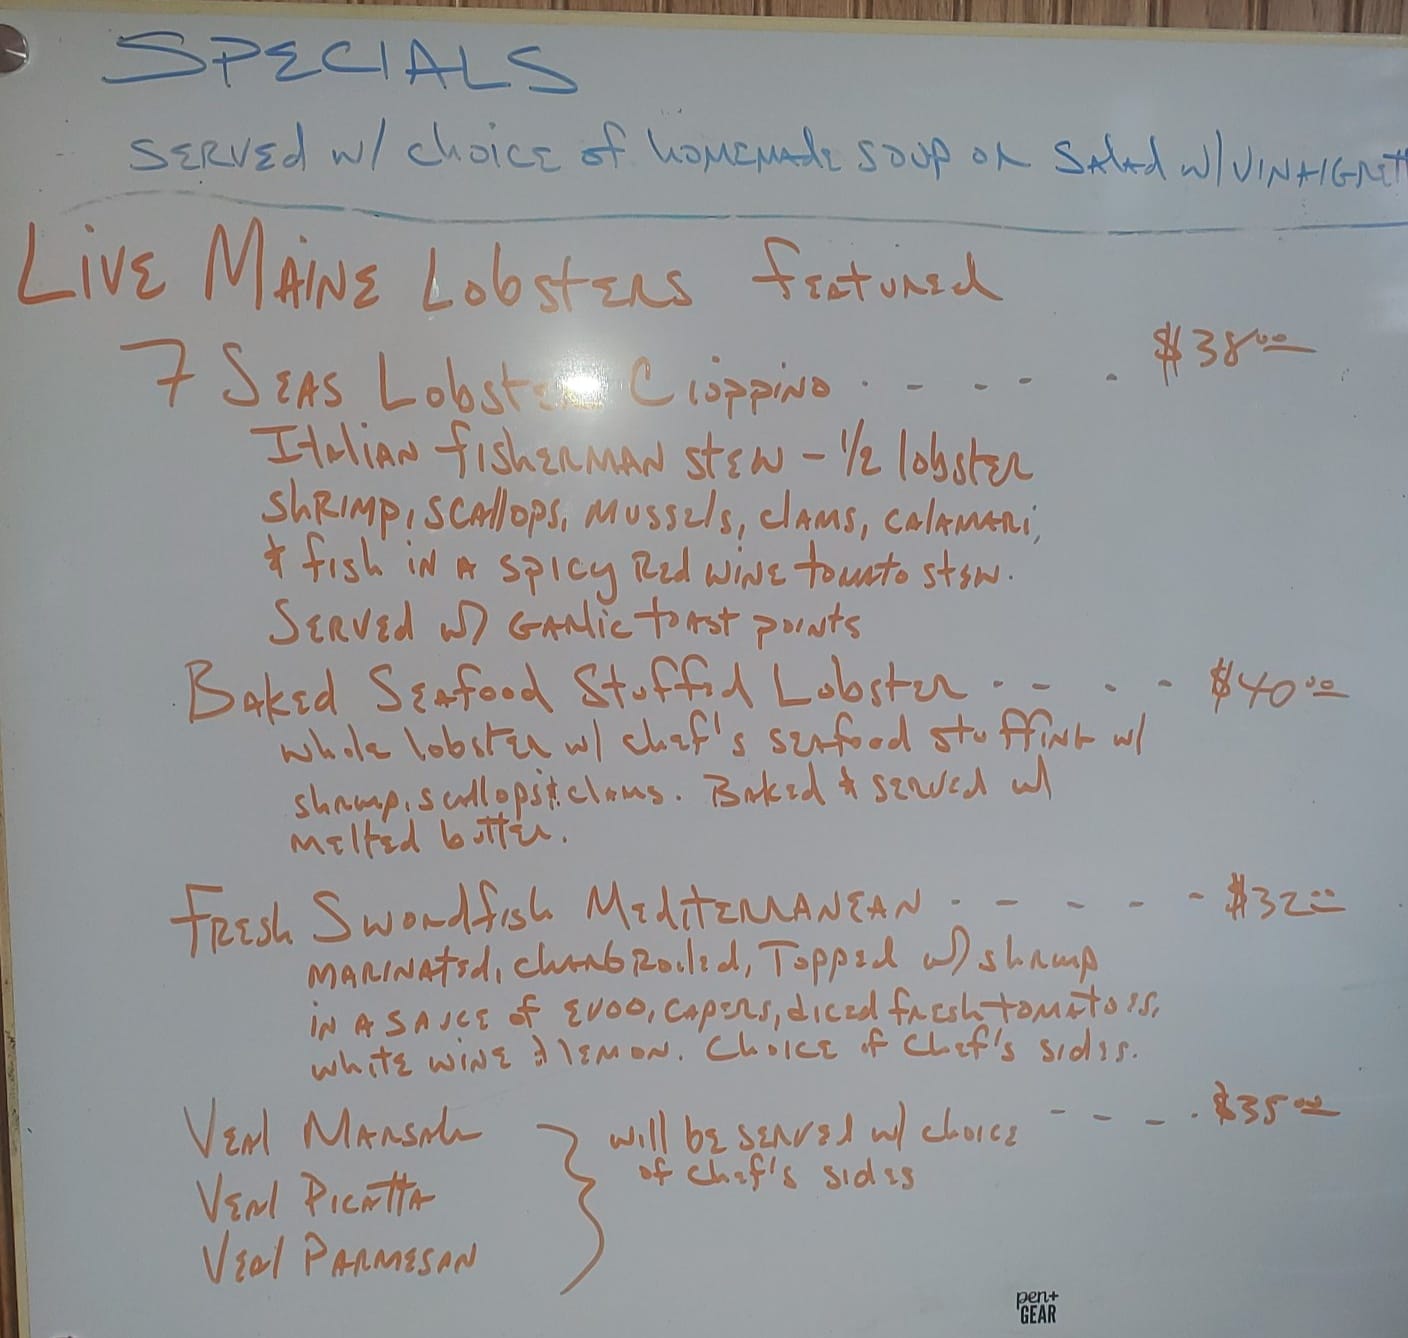 SPECIALS
SERVED w/ choice of homemade soup or Salad w/ VINAIGRETT
LIVE MAINE LobSTERS featured
7 SEAS Lobster Cioppino . - - - . $38.00
Italian fisherman stew - 1/2 lobster
shrimp, scallops, mussels, clams, calamari,
& fish in a spicy Red wine tomato stew.
Served w/ Garlic toast points
Baked Seafood Stuffed Lobster - - - - $40.00
whole lobster w/ chef's seafood stuffing w/
shrimp, scallops & clams. Baked & served w/
melted butter.
Fresh Swordfish Mediterranean - - - - - $32.00
marinated, charbroiled, Topped w/ shrimp
in a sauce of EVOO, capers, diced fresh tomatoes,
white wine & lemon. Choice of Chef's sides.
Veal Marsala } will be served w/ choice - - - . $35.00
of Chef's sides
Veal Picatta
Veal Parmesan
pen+
GEAR